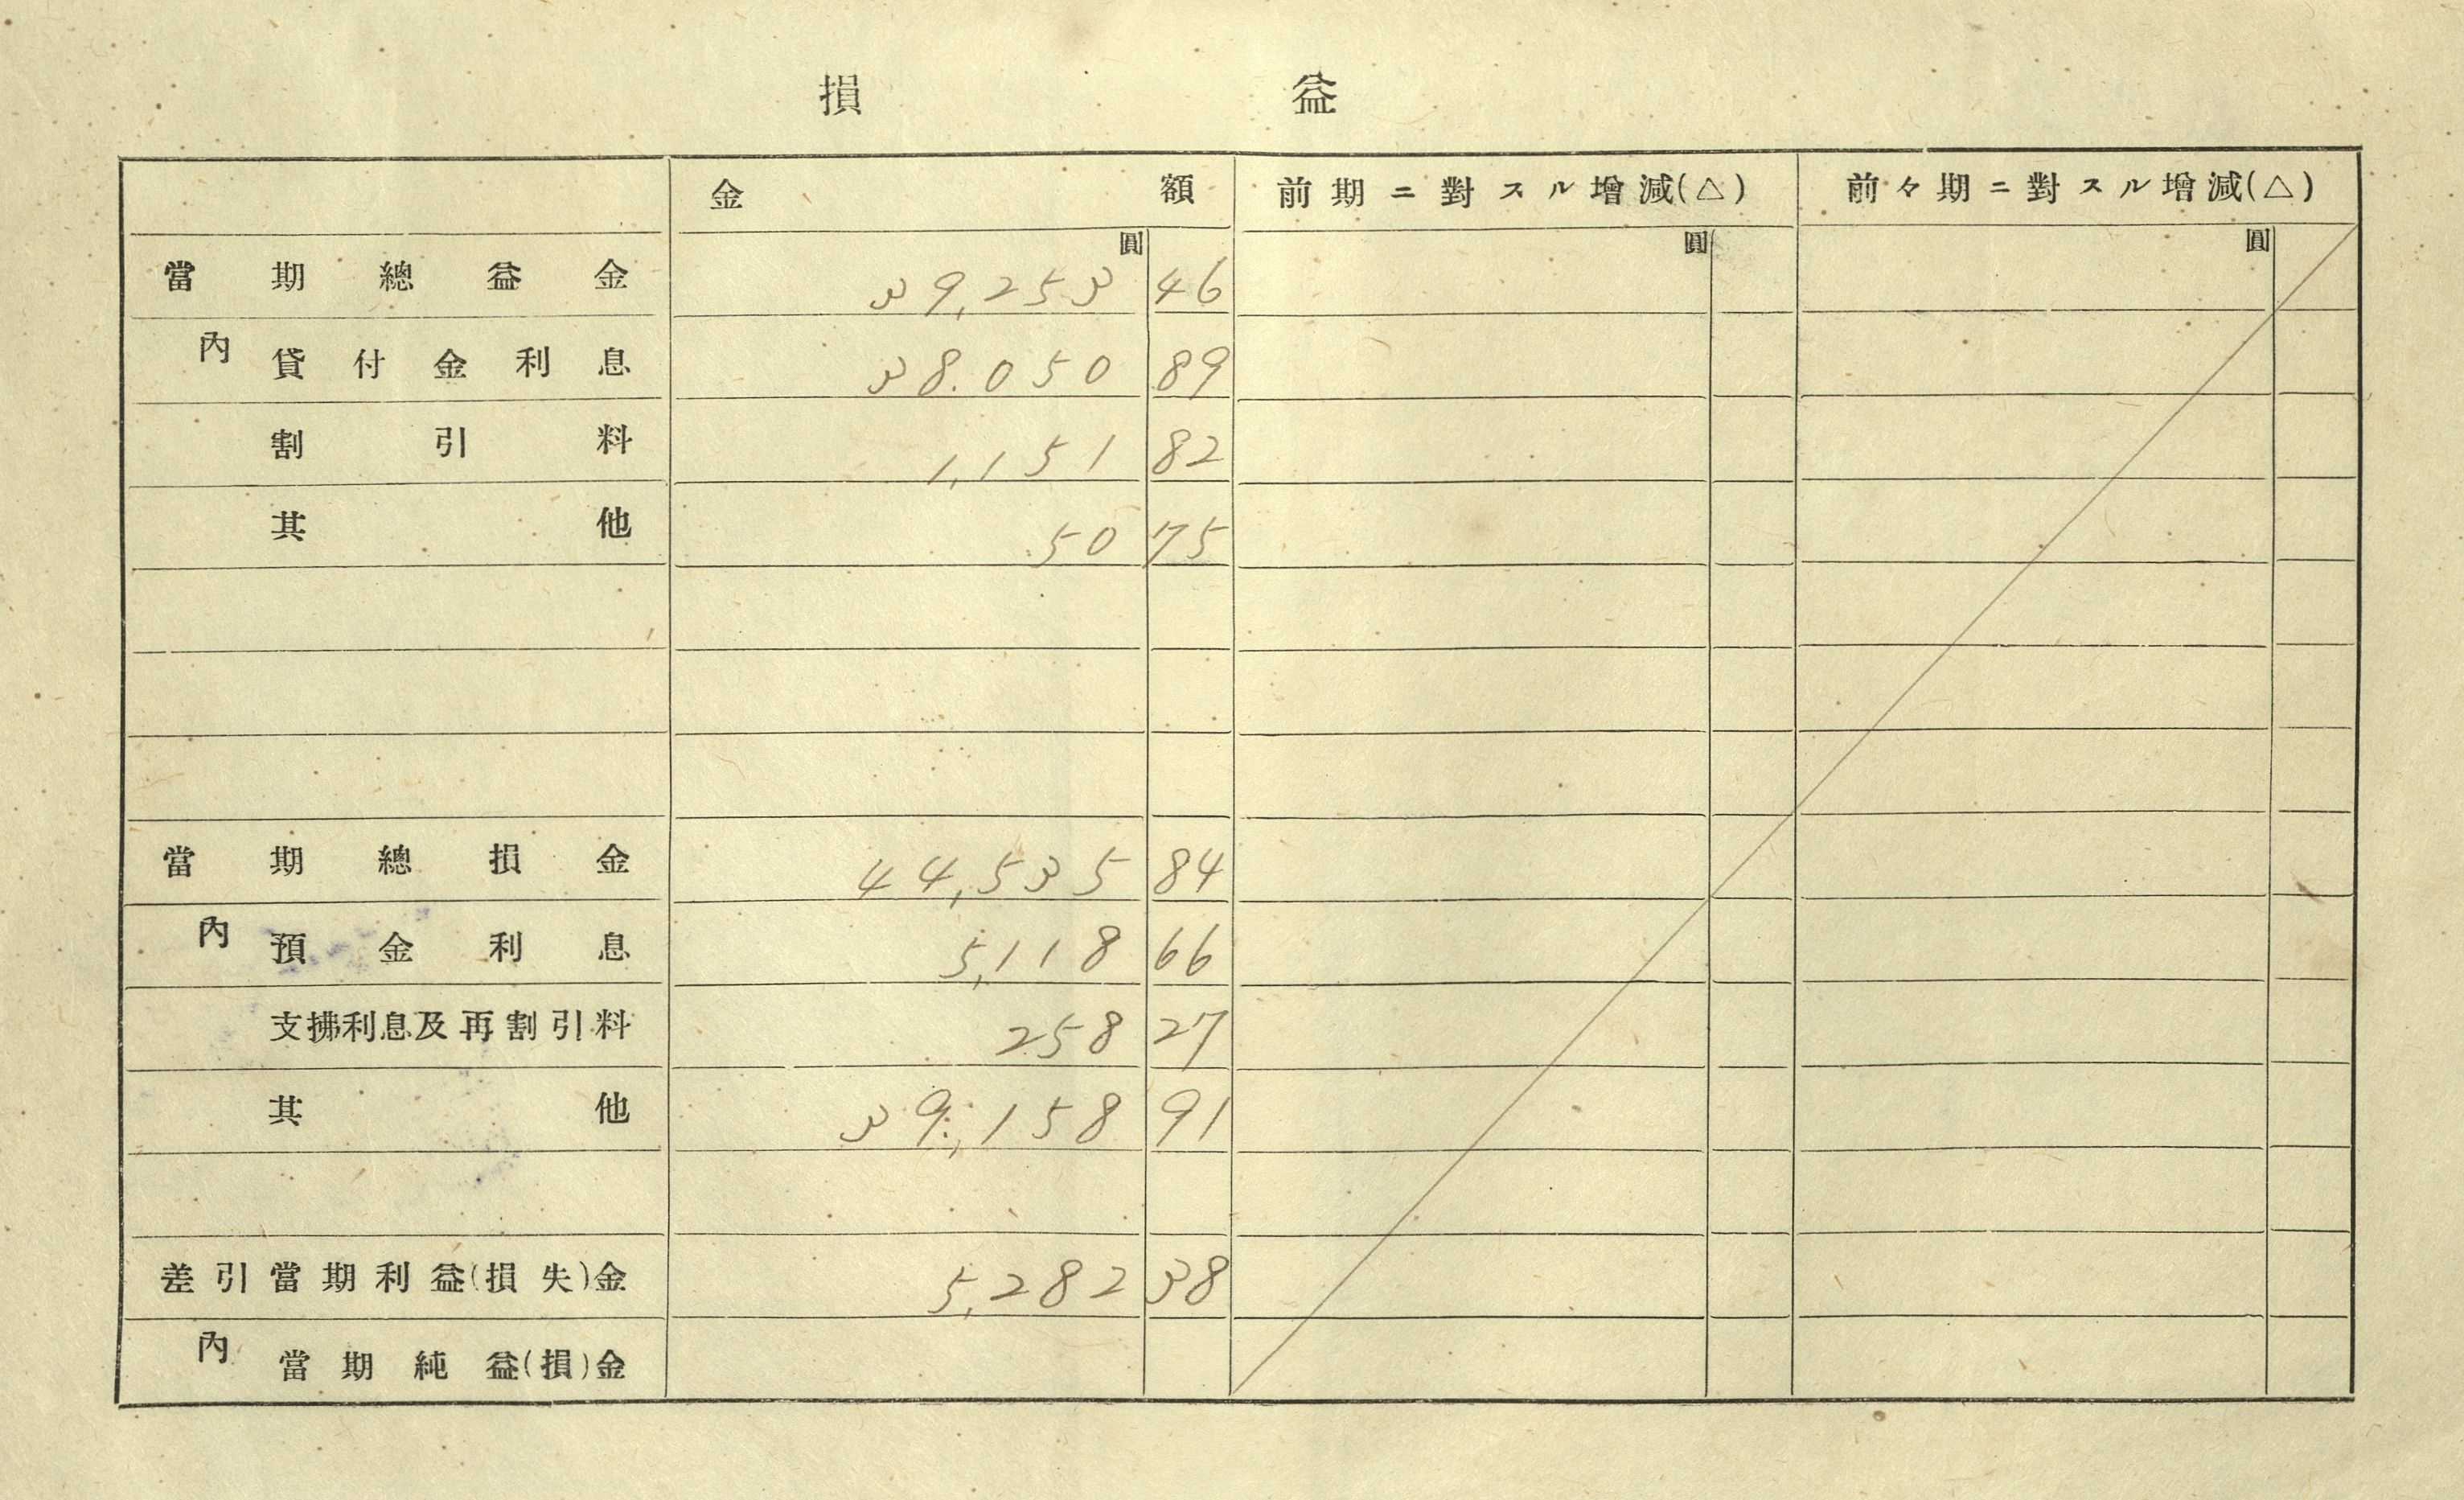 損益
金額 前期ニ對スル增減(△) 前々期ニ對スル增減(△)
圓 圓 圓
當期總益金 39,253 46
內 貸付金利息 38.050 89
割引料 1,151 82
其他 50 75
當期總損金 44,535 84
內 預金利息 5,118 66
支拂利息及再割引料 258 27
其他 39,158 91
差引當期利益(損失)金 5,282 38
內 當期純益(損)金